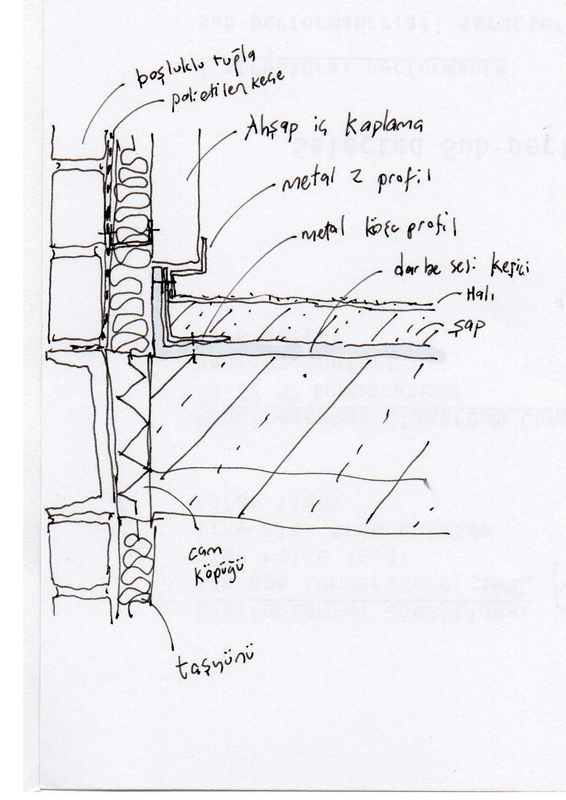 boşluklu tuğla
polietilen keçe
Ahşap iç Kaplama
metal Z profil
metal köşe profil
darbe sesi kesici
Halı
şap
cam
köpüğü
taşyünü